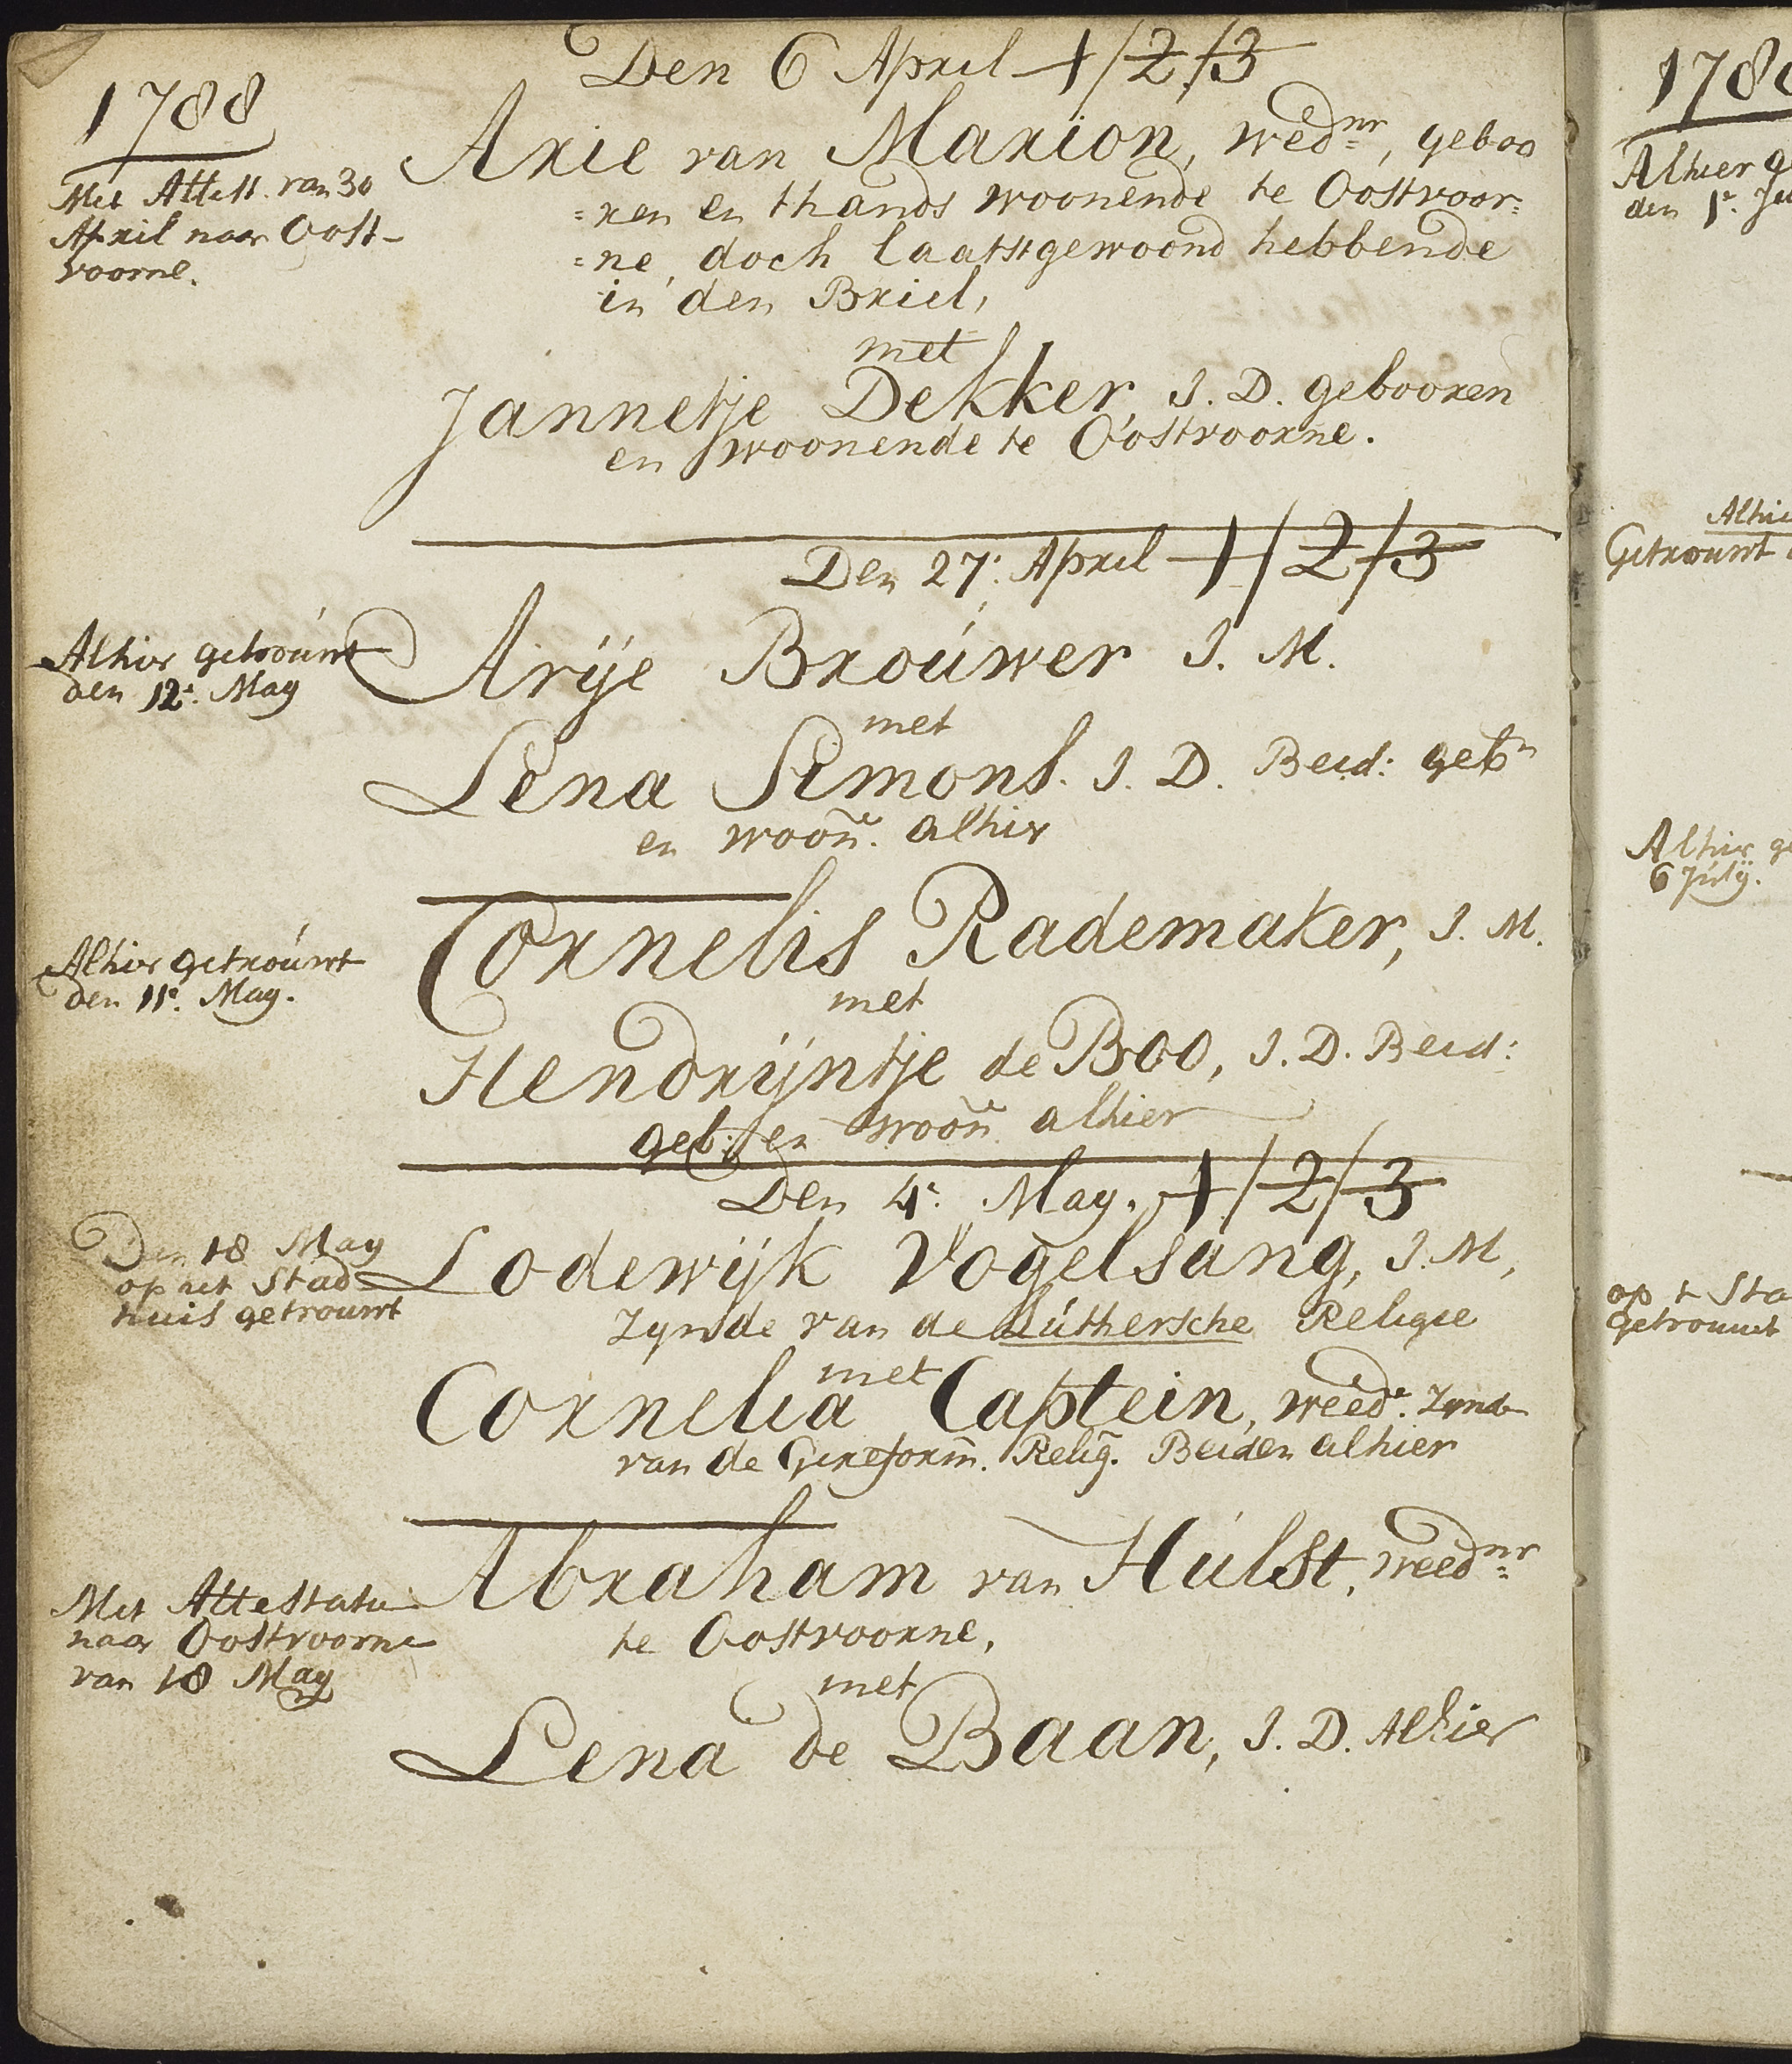 1788
Den 6 April 1/2/3
Met Attest. van 30
April naar Oost-
voorne.
Arie van Marion, wed=nr, geboo
=ren en thands woonende te Oostvoor=
=ne, doch laatstgewoond hebbende
in den Briel,
met
Jannetje Dekker, J. D. gebooren
en woonende te Oostvoorne.
Den 27: April 1/2/3
Alhier getrouwt
den 12: May
Arije Brouwer J. M.
met
Lena Simons. J. D. Beid: gebn
en woone. alhier
Alhier getrouwt
den 11e. May.
Cornelis Rademaker, J. M.
met
Hendrijntje de Boo, J. D. Beid:
geb: en woone alhier
Den 4e. May. 1/2/3
Den 18 May
op het Stad
huis getrouwt
Lodewijk Vogelsang, J. M,
Zynde van de Luthersche Religie
met
Cornelia Captein, weede. Zynde
van de Gereform. Relig. Beiden alhier
Met Attestatie
naar Oostvoorne
van 18 May
Abraham van Hulst, weed=nr
te Oostvoorne,
met
Lena de Baan, J. D. Alhier
178
Alhier g
den 1e. Ju
Alhie
Getrouwt
Alhier ge
6 July.
op t Sta
getrouwt